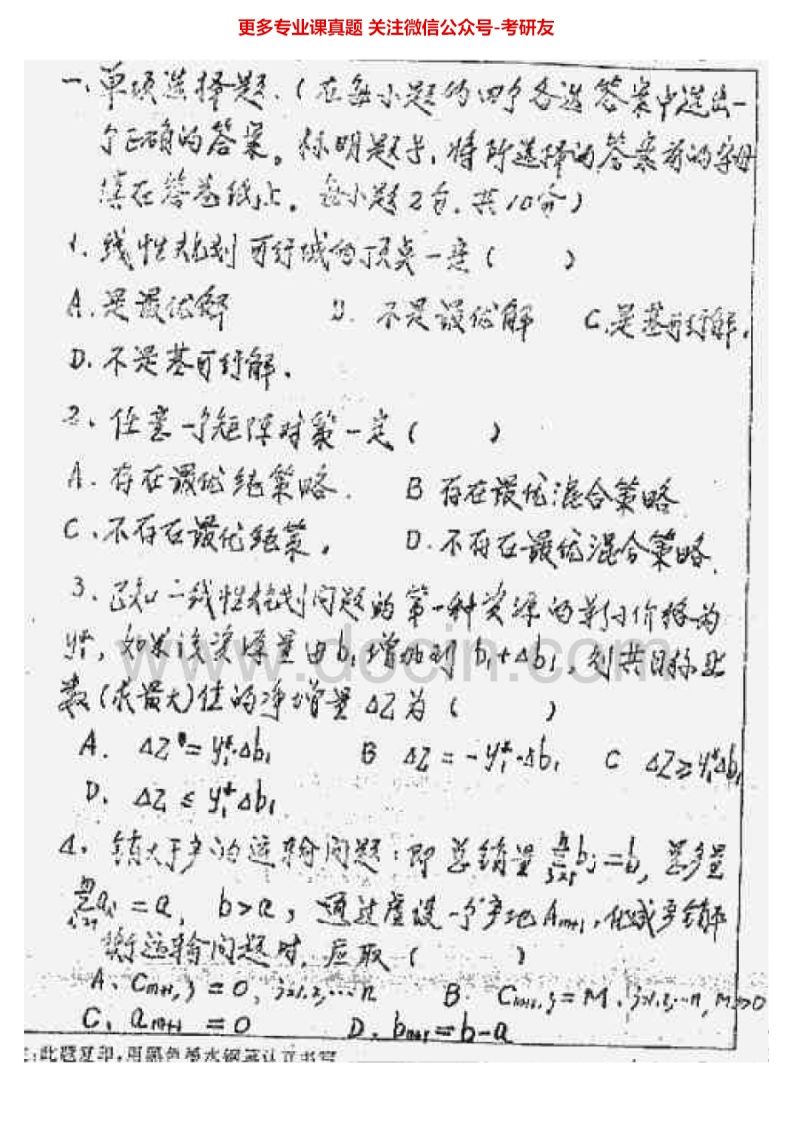 更多专业课真题 关注微信公众号-考研友
一、单项选择题.(在每小题的四个备选答案中选出一
个正确的答案。标明题号,将所选择的答案前的字母
填在答卷纸上。每小题2分.共10分)
1、线性规划可行域的顶点一定( )
A.是最优解 B.不是最优解 C.是基可行解.
D.不是基可行解.
2、任意一个矩阵对策一定( )
A.存在最优纯策略. B 存在最优混合策略
C、不存在最优纯策。 D.不存在最优混合策略.
3、已知一线性规划问题的第一种资源的影子价格为
y₁*,如果该资源量由b₁增加到b₁+Δb₁,则其目标函
数(求最大)值的净增量ΔZ为( )
A. ΔZ=y₁*·Δb₁ B ΔZ=-y₁*·Δb₁ C ΔZ≥y₁*Δb₁
D. ΔZ≤y₁*Δb₁
4、销大于产的运输问题:即总销量∑_{j=1}^{n}b_j=b,总产量
∑_{i=1}^{m}a_i=a, b>a,通过虚设一个产地A_{m+1},化成产销平
衡运输问题时,应取( )
A、C_{m+1,j}=0, j=1,2,…n B. C_{m+1,j}=M, j=1,2,…n, M>0
C、a_{m+1}=0 D. b_{n+1}=b-a
此题复印,用黑色墨水钢笔认真书写
www.docin.com